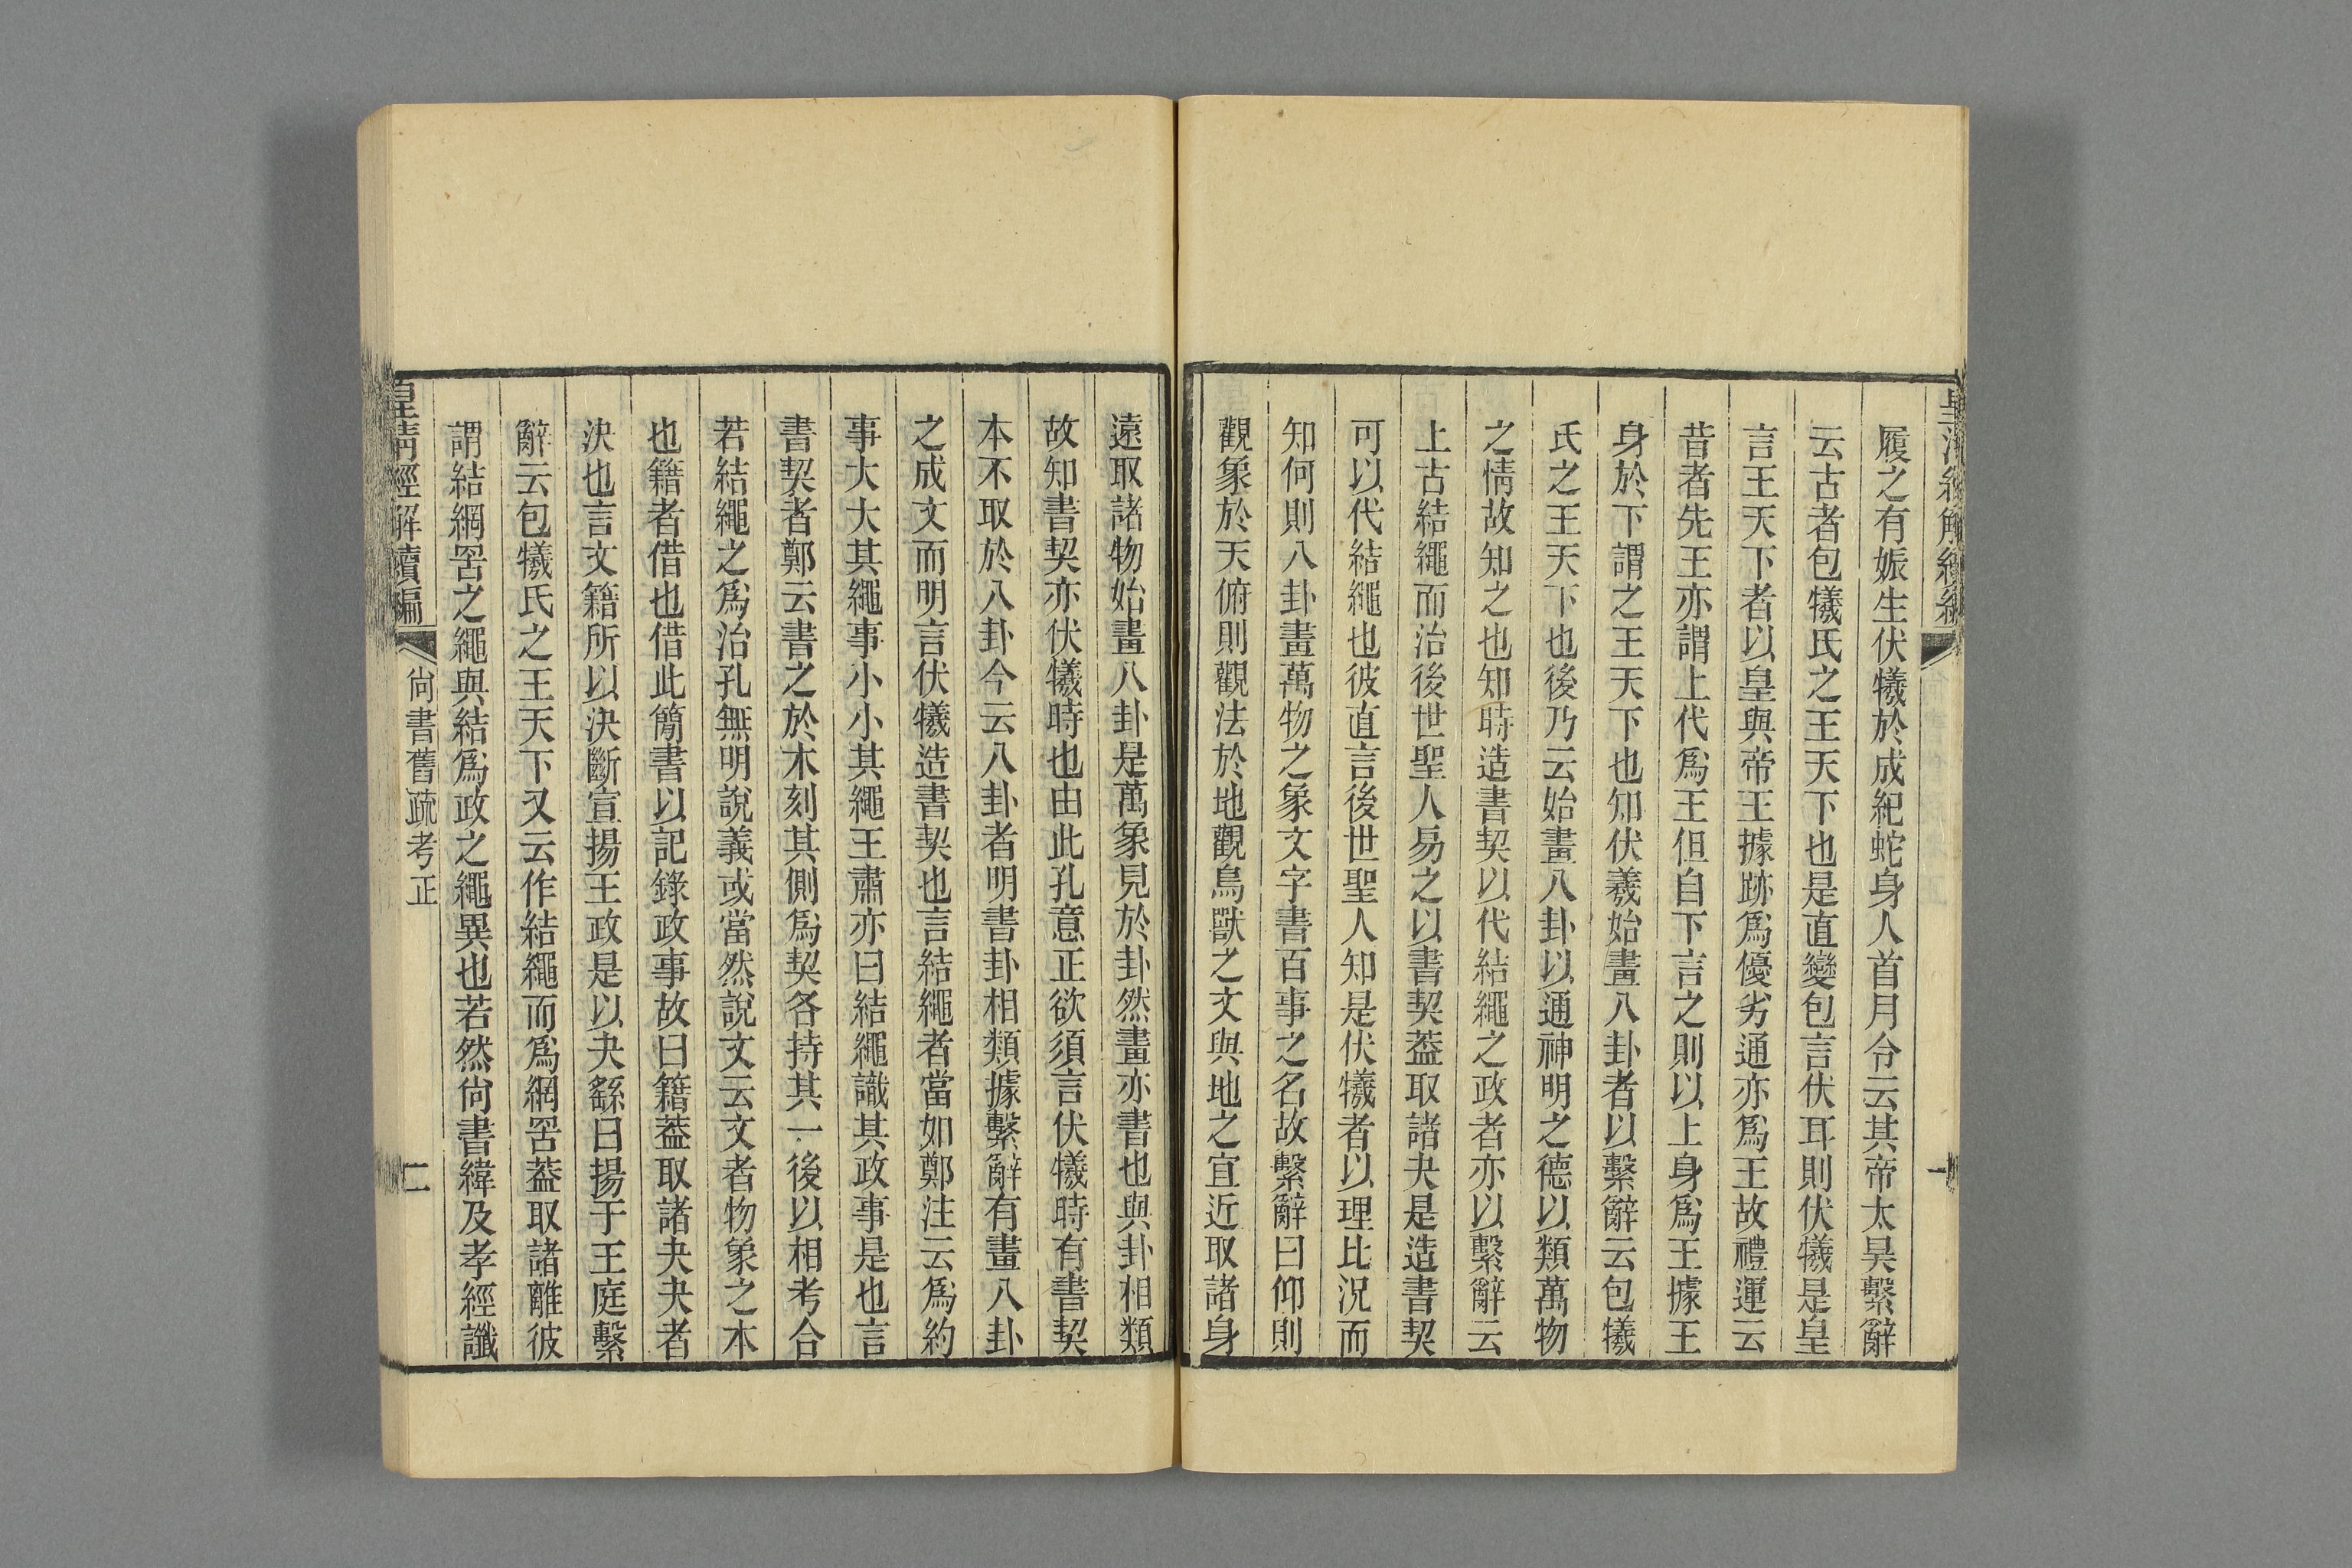 履之有娠生伏犧於成紀蛇身人首月令云其帝太昊繫辭
云古者包犧氏之王天下也是直變包言伏耳則伏犧是皇
言王天下者以皇與帝王據跡爲優劣通亦爲王故禮運云
昔者先王亦謂上代爲王但自下言之則以上身爲王據王
身於下謂之王天下也知伏羲始畫八卦者以繫辭云包犧
氏之王天下也後乃云始畫八卦以通神明之德以類萬物
之情故知之也知時造書契以代結繩之政者亦以繫辭云
上古結繩而治後世聖人易之以書契蓋取諸夬是造書契
可以代結繩也彼直言後世聖人知是伏犧者以理比況而
知何則八卦畫萬物之象文字書百事之名故繫辭曰仰則
觀象於天俯則觀法於地觀鳥獸之文與地之宜近取諸身
遠取諸物始畫八卦是萬象見於卦然畫亦書也與卦相類
故知書契亦伏犧時也由此孔意正欲須言伏犧時有書契
本不取於八卦今云八卦者明書卦相類據繫辭有畫八卦
之成文而明言伏犧造書契也言結繩者當如鄭注云爲約
事大大其繩事小小其繩王肅亦曰結繩識其政事是也言
書契者鄭云書之於木刻其側爲契各持其一後以相考合
若結繩之爲治孔無明說義或當然說文云文者物象之本
也籍者借也借此簡書以記錄政事故曰籍蓋取諸夬夬者
決也言文籍所以決斷宣揚王政是以夬繇曰揚于王庭繫
辭云包犧氏之王天下又云作結繩而爲網罟蓋取諸離彼
謂結網罟之繩與結爲政之繩異也若然尙書緯及孝經讖
皇清經解續編
尙書舊疏考正
二